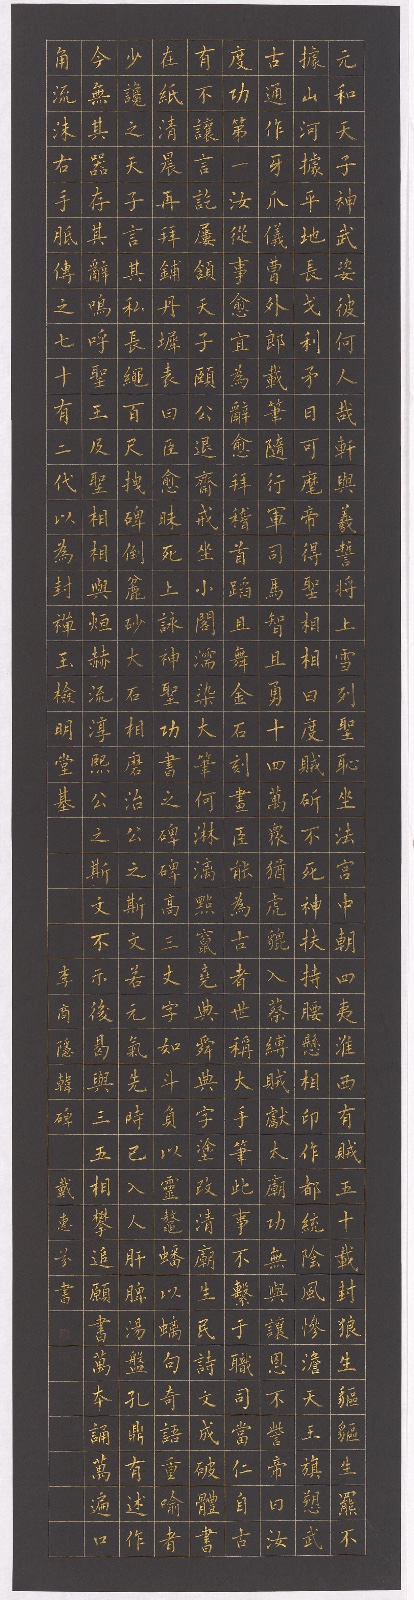 元和天子神武姿彼何人哉軒與羲誓將上雪列聖恥坐法宮中朝四夷淮西有賊五十載封狼生貙貙生羆不
據山河據平地長戈利矛日可麾帝得聖相相曰度賊斫不死神扶持腰懸相印作都統陰風慘澹天王旗愬武
古通作牙爪儀曹外郎載筆隨行軍司馬智且勇十四萬眾猶虎貔入蔡縛賊獻太廟功無與讓恩不訾帝曰汝
度功第一汝從事愈宜為辭愈拜稽首蹈且舞金石刻畫臣能為古者世稱大手筆此事不繫于職司當仁自古
有不讓言訖屢頷天子頤公退齋戒坐小閣濡染大筆何淋漓點竄堯典舜典字塗改清廟生民詩文成破體書
在紙清晨再拜鋪丹墀表曰臣愈昧死上詠神聖功書之碑碑高三丈字如斗負以靈鼇蟠以螭句奇語重喻者
少讒之天子言其私長繩百尺拽碑倒麄砂大石相磨治公之斯文若元氣先時已入人肝脾湯盤孔鼎有述作
今無其器存其辭嗚呼聖王及聖相相與烜赫流淳熙公之斯文不示後曷與三五相攀追願書萬本誦萬遍口
角流沫右手胝傳之七十有二代以為封禪玉檢明堂基 李商隱韓碑 戴惠芬書